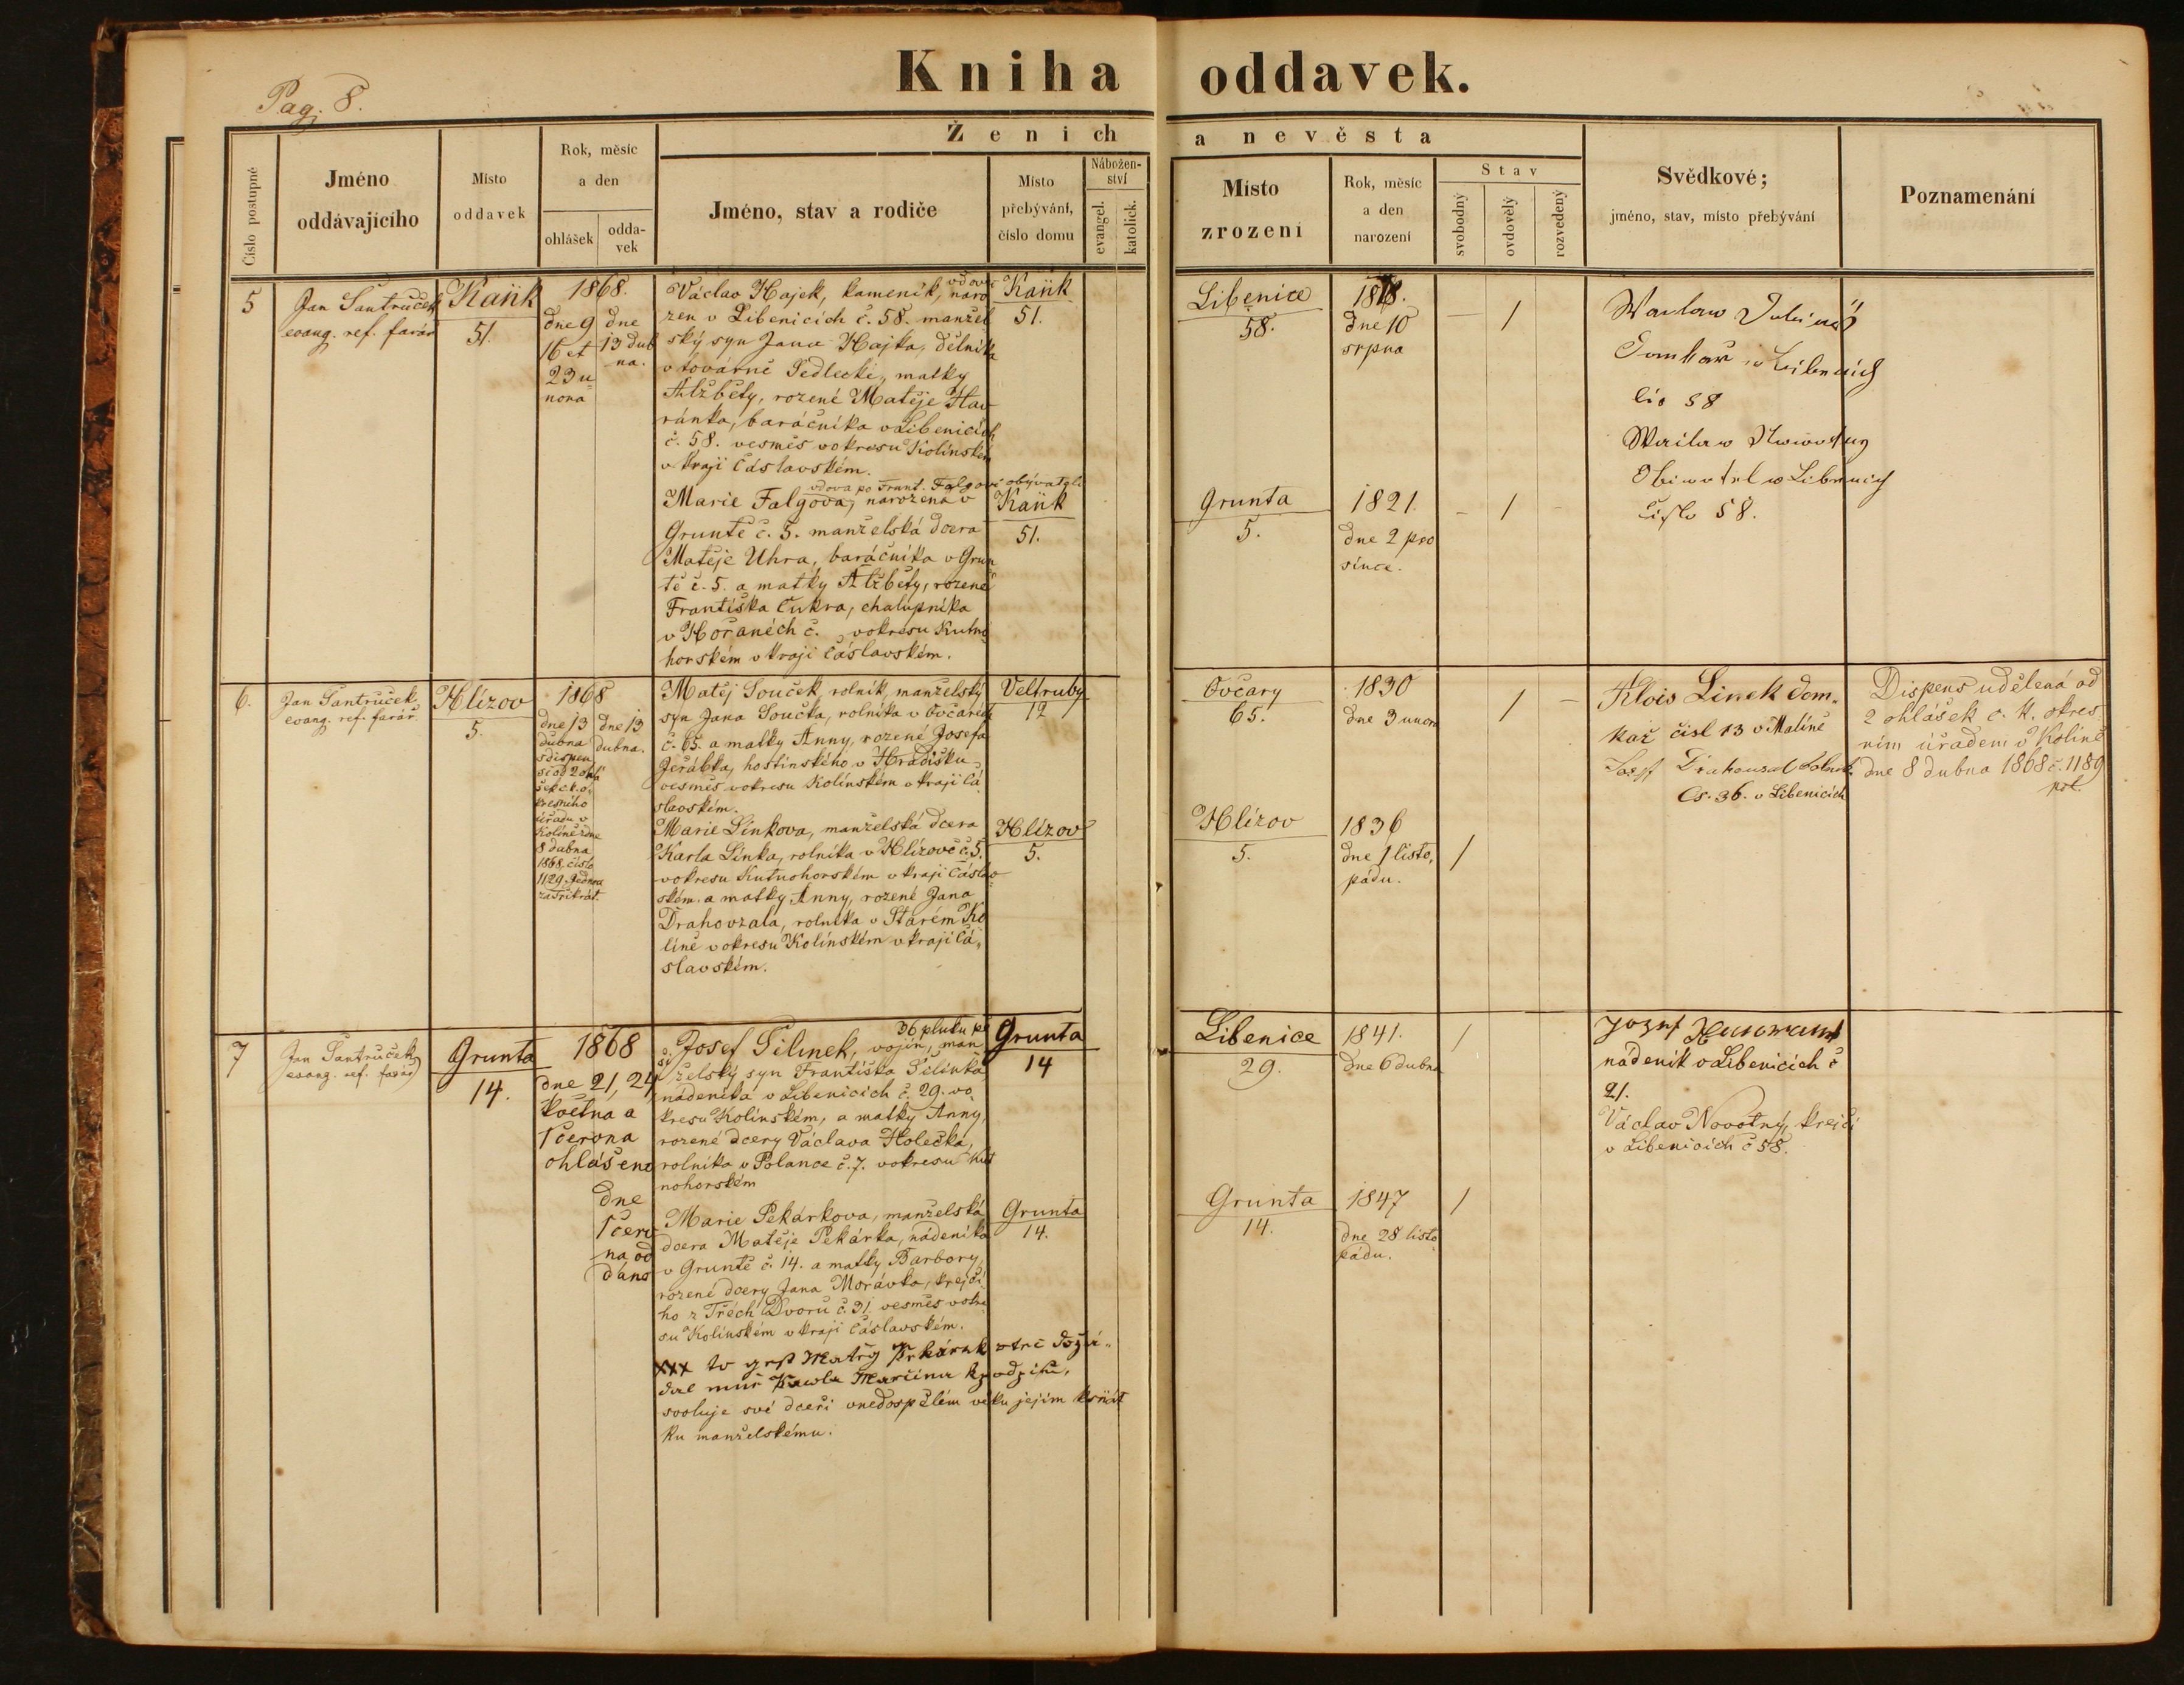 Kniha oddavek.
Pag. 8.
Ženich a nevěsta
Číslo postupné
Jméno
oddávajícího
Místo
oddavek
Rok, měsíc
a den
ohlášek
odda-
vek
Jméno, stav a rodiče
Místo
přebývání,
číslo domu
Nábožen-
ství
evangel.
katolick.
Místo
zrození
Rok, měsíc
a den
narození
Stav
svobodný
ovdovělý
rozvedený
Svědkové;
jméno, stav, místo přebývání
Poznamenání
5
Jan Šantruček
evang. ref. farář
Kaňk
51.
1868.
dne 9
16 et
23 u
nora
dne
13 dub
na.
vdovec
Václav Hajek, kameník, naro
zen v Libenicích č. 58. manžel
ský syn Jana Hajka, dělníka
v továrně Sedlecké, matky
Alžběty, rozené Matěje Hav
ránka, baráčníka v Libenicích
č. 58. vesměs v okresu Kolínském
v kraji Čáslavském.
Kaňk
51.
Libenice
58.
1818.
dne 10
srpna
1
čis 58
vdova po Frant. Falgovi obývateli
Marie Falgova, narozena v
Gruntě č. 5. manželská dcera
Matěje Uhra, baráčníka v Grun
tě č. 5. a matky Alžběty, rozené
Františka Cukra, chalupníka
v Hořanech č. v okresu Kutno
horském v kraji Čáslavském.
Kaňk
51.
Grunta
5.
1821.
dne 2 pro
since.
1
Obiwatel w Libenich
Čislo 58.
6.
Jan Šantruček,
evang. ref. farář.
Hlízov
5.
1868
dne 13
dubna
s dispen
sí od 2 ohlá
šek c. k. o
kresního
úřadu v
Kolíně dne
8 dubna
1868 číslo
1129 jednou
za třikrát.
dne 13
dubna.
Matěj Souček, rolník, manželský
syn Jana Součka, rolníka v Ovčarech
č. 65. a matky Anny, rozené Josefa
Jeřábka, hostinského v Hradišku
vesměs v okresu Kolínském v kraji Čá
slavském.
Veltruby
12
Ovčary
65.
1830
dne 3 unora
1
Alois Linek dom-
kař čisl 13 v Malíně
Josef Drahouzal
Čs. 36. v Libenicích
Dispens udělená od
2 ohlášek c. k. okres
ním úřadem v Kolíně
dne 8 dubna 1868 č. 1189
pol.
Marie Linkova, manželská dcera
Karla Linka, rolníka v Hlízově č. 5.
v okresu Kutnohorském v kraji Čáslav
ském. a matky Anny, rozené Jana
Drahovzala, rolníka v Starém Ko
líně v okresu Kolínském v kraji Čá,
slavském.
Hlízov
5.
Hlízov
5.
1836
dne 1 listo,
pádu.
1
7
Jan Šantruček
evang. ref. farář
Grunta
14.
1868
dne 21, 24
května a
1 června
ohlášeno
dne
1 červ
na od
dáno
36 pluku pě
ší
Josef Šilinek, vojín, man
želský syn Františka Šilinka
nádeníka v Libenicích č. 29. v o
kresu Kolínském, a matky Anny,
rozené dcery Václava Holečka,
rolníka v Polance č. 7. v okresu Kut
nohorském
Grunta
14
Libenice
29.
1841.
dne 6 dubna
1
nádeník v Libenicích č
21.
Václav Novotný, krejčí
v Libenicích č 58.
Marie Pekárkova, manželská
dcera Matěje Pekárka, nádeníka
v Gruntě č. 14. a matky Barbory,
rozené dcery Jana Morávka, krejčí
ho z Třech Dvorů č. 31. vesměs v okre
su Kolínském v kraji Čáslavském.
Grunta
14.
Grunta
14.
1847
dne 28 listo
pádu.
1
xxx to gest Matěg Pekárek
svoluje své dceři v nedospělém věku jejím k sňat
ku manželskému.